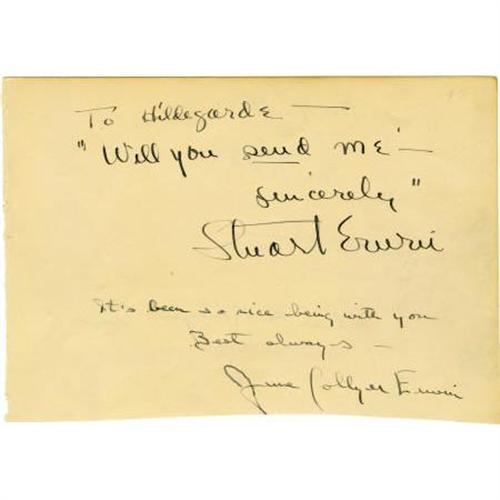 To Hildegarde —
"Will you send me —
sincerely"
Stuart Erwin
It's been so nice being with you
Best always —
June Collyer Erwin